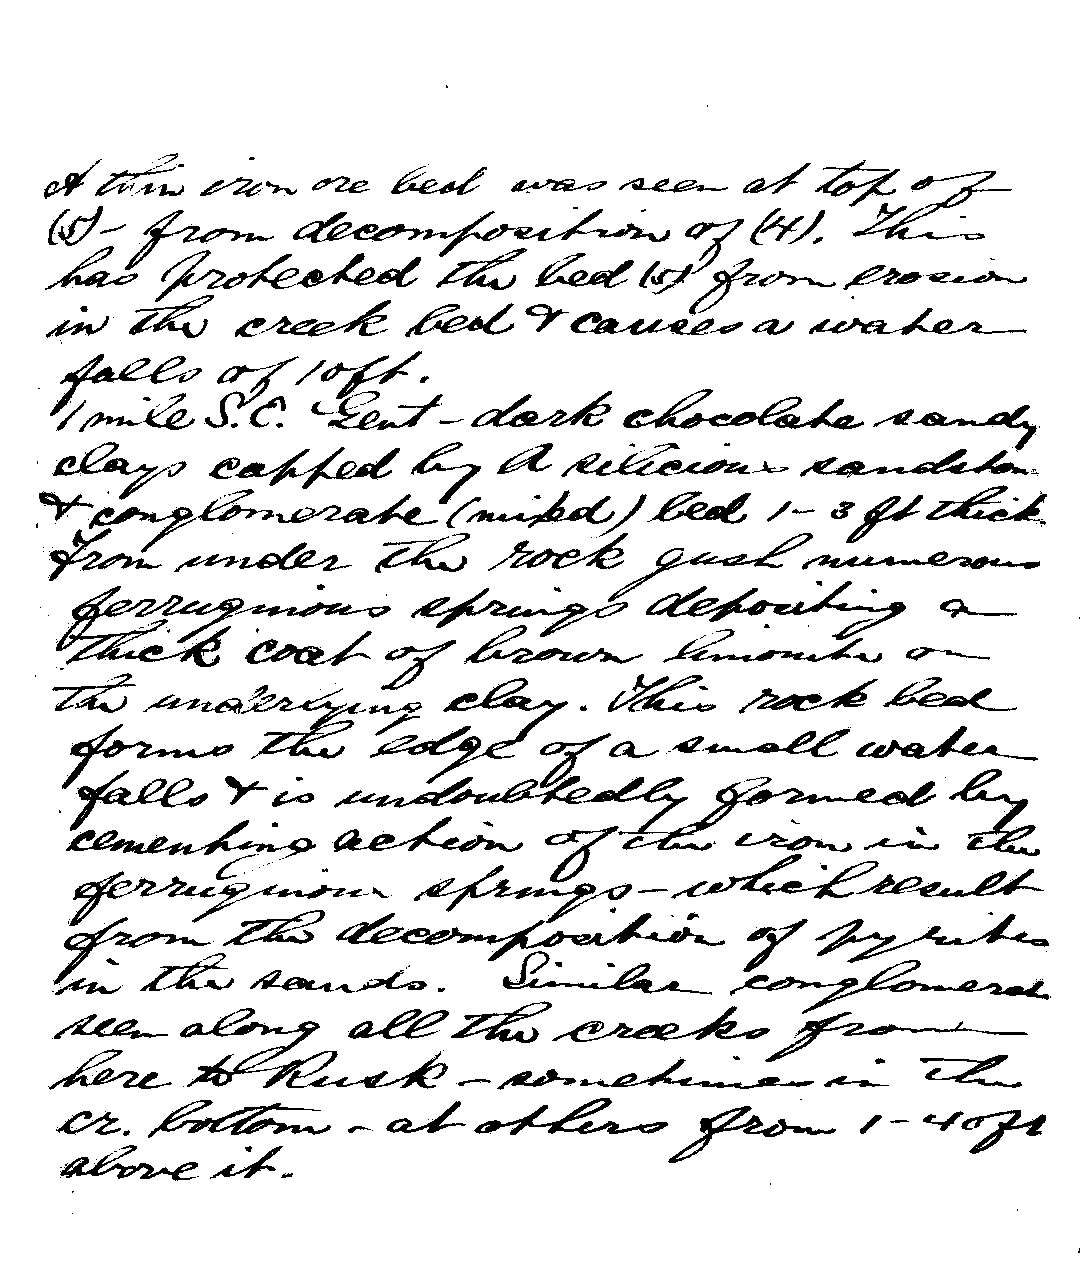 A thin iron ore bed was seen at top of
(5) - from decomposition of (4). This
has protected the bed (5) from erosion
in the creek bed & causes a water
falls of 10ft.
1 mile S.E. Gent - dark chocolate sandy
clays capped by A silicious sandston
& conglomerate (mixed) bed 1-3 ft thick.
From under the rock gush numerous
ferruginous springs depositing a
thick coat of brown limonite on
the underlying clay. This rock bed
forms the edge of a small water
falls & is undoubtedly formed by
cementing action of the iron in the
ferruginous springs - which result
from the decomposition of pyrites
in the sands. Similar conglomerate
seen along all the creeks from
here to Rusk - sometimes in the
cr. bottom - at others from 1-40ft
above it.